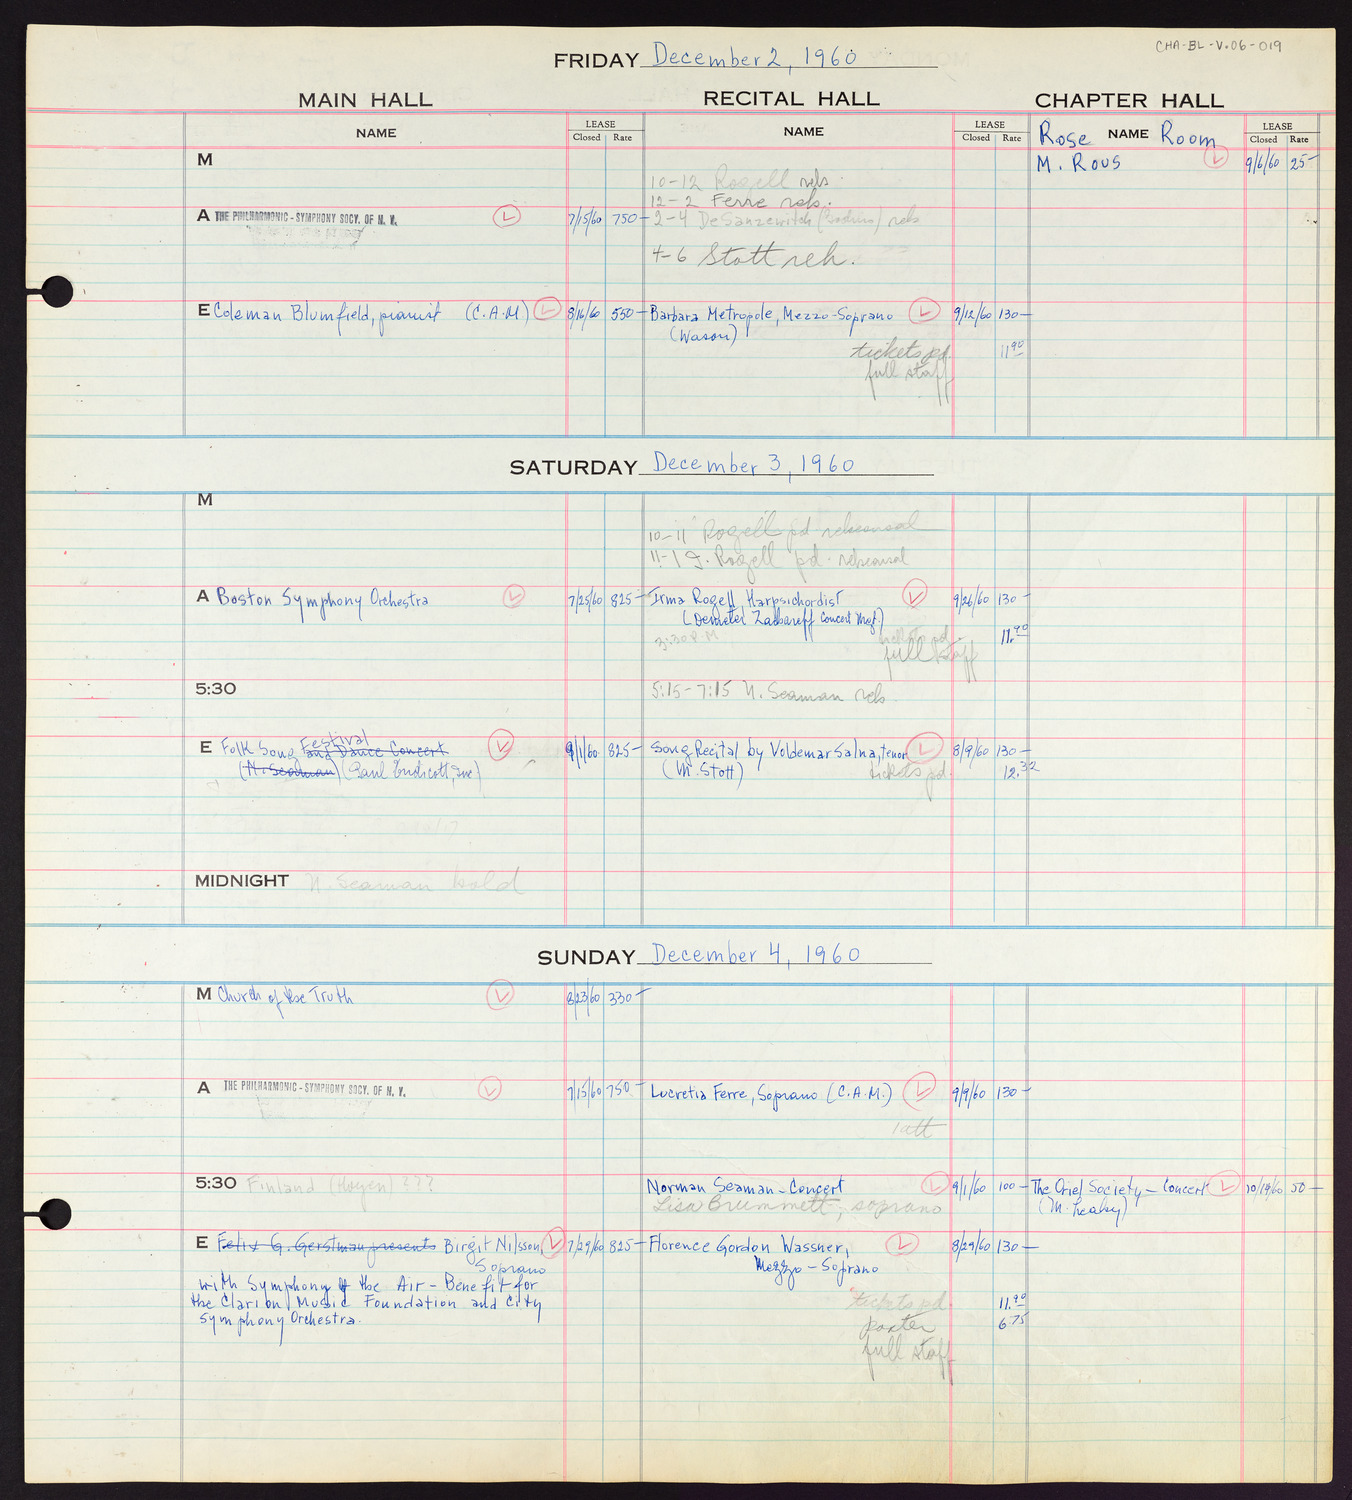 CHA-BL-V.06-019
FRIDAY December 2, 1960
MAIN HALL RECITAL HALL CHAPTER HALL
NAME LEASE Closed Rate NAME LEASE Closed Rate Rose NAME Room LEASE Closed Rate
M M. Rous 9/6/60 25-
10-12 Rogell reh.
12-2 Ferre reh.
A THE PHILHARMONIC-SYMPHONY SOCY. OF N. Y. 7/15/60 750- 2-4 reh
4-6 Stott reh.
E Coleman Blumfield, pianist (C.A.M) 8/16/60 550- Barbara Metropole, Mezzo-Soprano 9/12/60 130-
(Wason)
tickets pd. 11.90
full staff
SATURDAY December 3, 1960
M
10-11 Rogell pd rehearsal
11-1 I. Rogell pd. rehearsal
A Boston Symphony Orchestra 7/25/60 825- Irma Rogell Harpsichordist 9/26/60 130-
(Demeter Zachareff Concert Mgt.)
3:30 P.M tickets pd. 11.90
full staff
5:30 5:15-7:15 N. Seaman reh
E Folk Song Festival and Dance Concert 9/1/60 825- Song Recital by Voldemar Salna, tenor 8/9/60 130-
(N. Seaman) (Paul Endicott, Inc) (M. Stott) tickets pd. 12.32
MIDNIGHT N. Seaman hold
SUNDAY December 4, 1960
M Church of the Truth 8/23/60 330-
A THE PHILHARMONIC-SYMPHONY SOCY. OF N. Y. 7/15/60 750- Lucretia Ferre, Soprano (C.A.M.) 9/9/60 130-
1 att
5:30 Finland ??? Norman Seaman-Concert 9/1/60 100- The Society-Concert 10/19/60 50-
Lisa Brummett, soprano (M. Leahy)
E Felix G. Gerstman presents Birgit Nilsson, 7/29/60 825- Florence Gordon Wassner, 8/29/60 130-
Soprano Mezzo-Soprano
with Symphony of the Air-Benefit for
the Clarion Music Foundation and City tickets pd. 11.90
Symphony Orchestra. porter 6.75
full staff